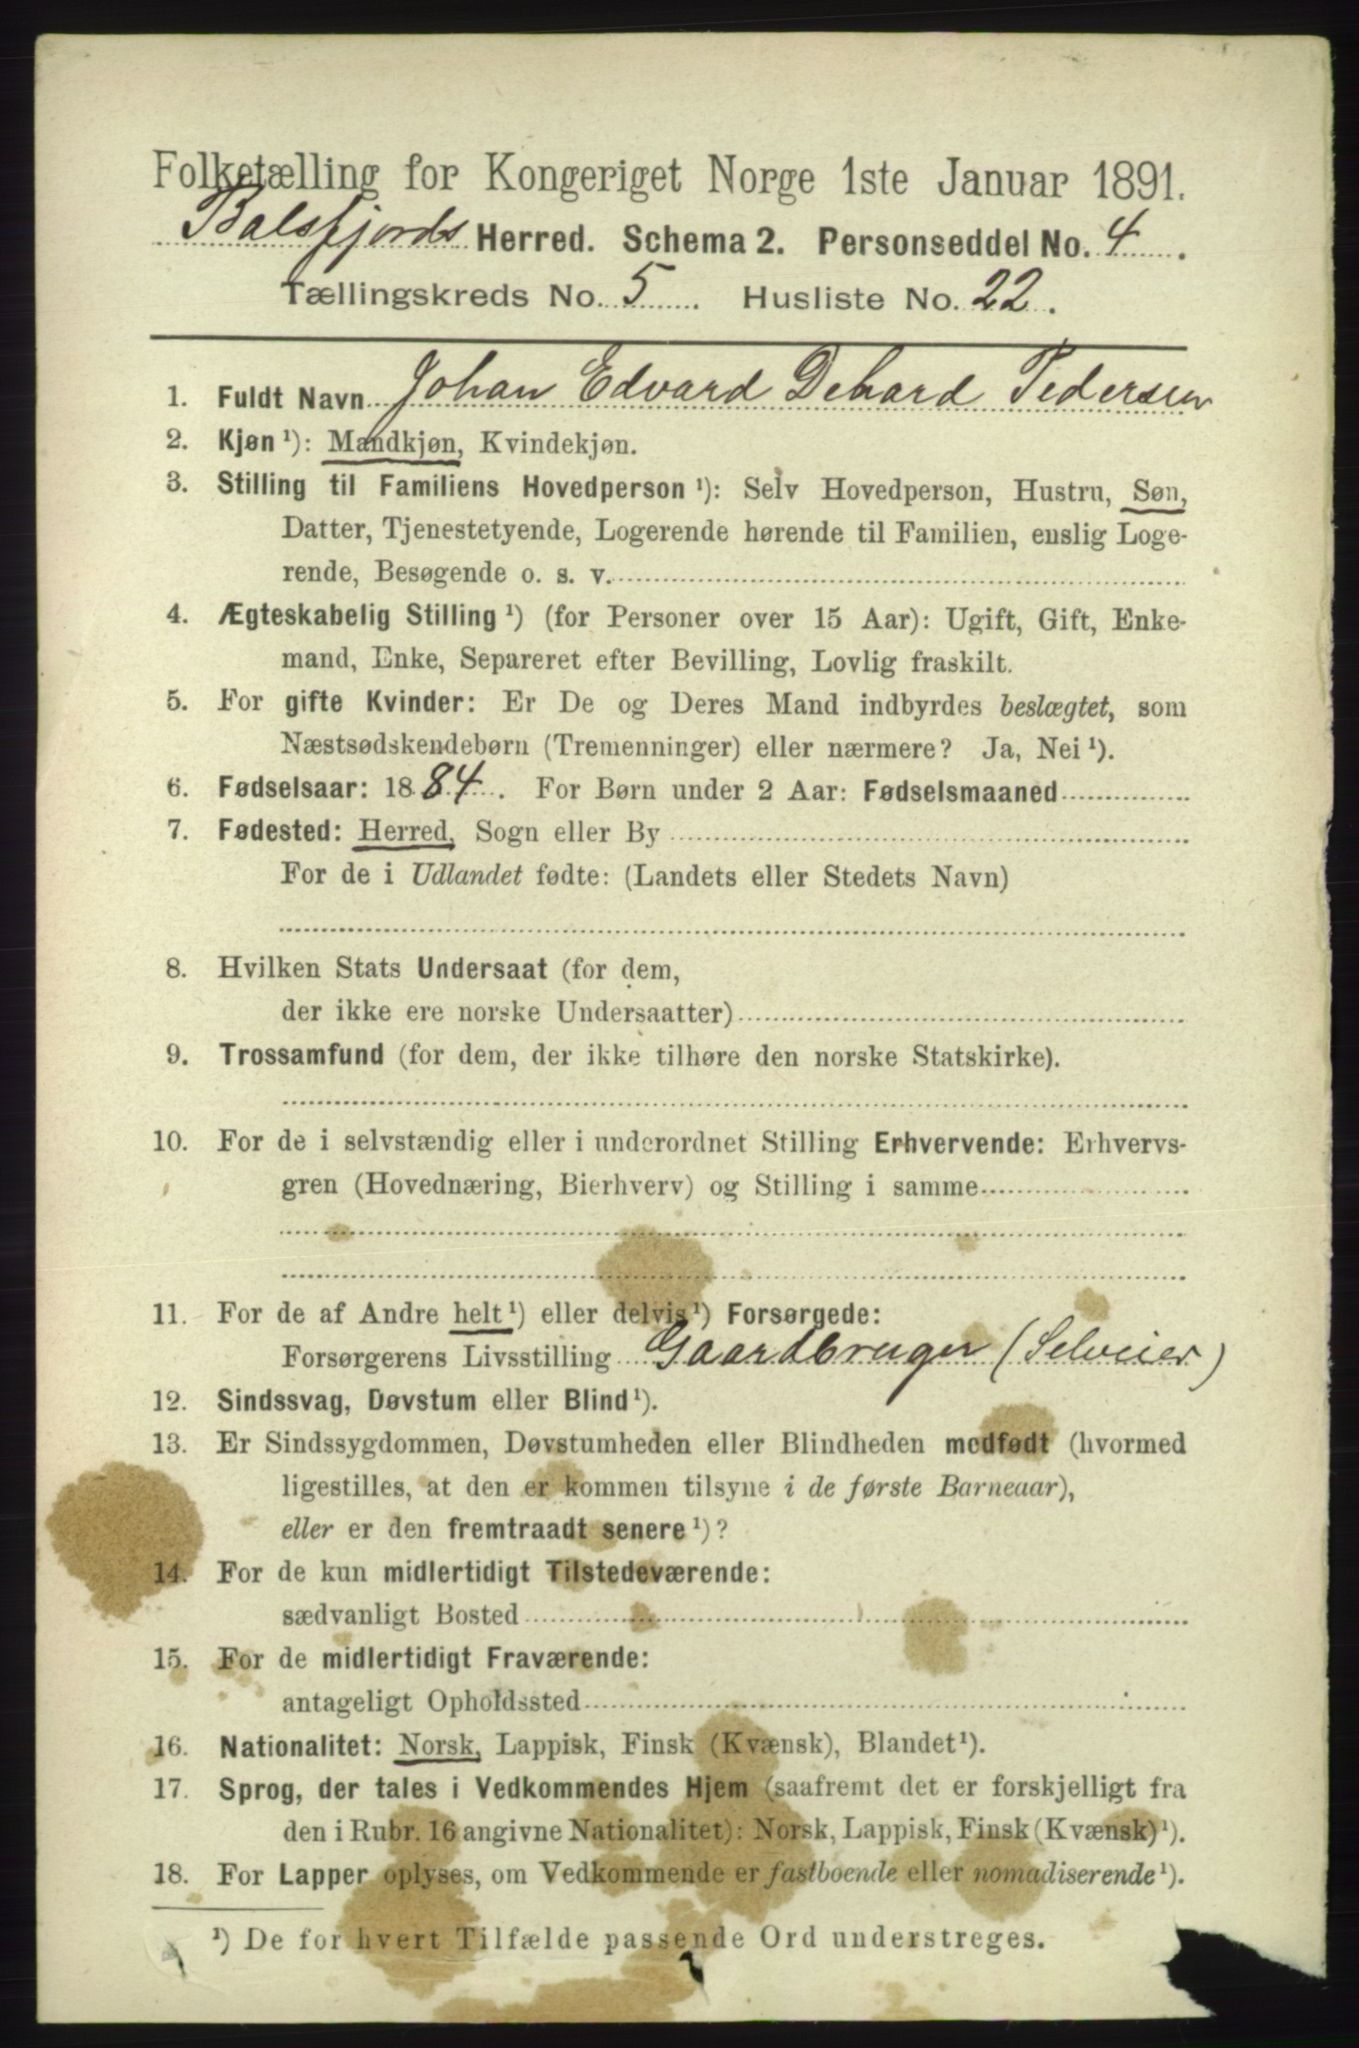 Folketælling for Kongeriget Norge 1ste Januar 1891.
Balsfjords Herred. Schema 2. Personseddel No. 4.
Tællingskreds No. 5. Husliste No. 22.
1. Fuldt Navn Johan Edvard Dehard Pedersen
2. Kjøn ¹): Mandkjøn, Kvindekjøn.
3. Stilling til Familiens Hovedperson ¹): Selv Hovedperson, Hustru, Søn,
Datter, Tjenestetyende, Logerende hørende til Familien, enslig Loge-
rende, Besøgende o. s. v.
4. Ægteskabelig Stilling ¹) (for Personer over 15 Aar): Ugift, Gift, Enke-
mand, Enke, Separeret efter Bevilling, Lovlig fraskilt.
5. For gifte Kvinder: Er De og Deres Mand indbyrdes beslægtet, som
Næstsødskendebørn (Tremenninger) eller nærmere? Ja, Nei ¹).
6. Fødselsaar: 1884. For Børn under 2 Aar: Fødselsmaaned
7. Fødested: Herred, Sogn eller By
For de i Udlandet fødte: (Landets eller Stedets Navn)
8. Hvilken Stats Undersaat (for dem,
der ikke ere norske Undersaatter)
9. Trossamfund (for dem, der ikke tilhøre den norske Statskirke).
10. For de i selvstændig eller i underordnet Stilling Erhvervende: Erhvervs-
gren (Hovednæring, Bierhverv) og Stilling i samme
11. For de af Andre helt ¹) eller delvis ¹) Forsørgede:
Forsørgerens Livsstilling Gaardbruger (Selveier)
12. Sindssvag, Døvstum eller Blind ¹).
13. Er Sindssygdommen, Døvstumheden eller Blindheden medfødt (hvormed
ligestilles, at den er kommen tilsyne i de første Barneaar),
eller er den fremtraadt senere ¹)?
14. For de kun midlertidigt Tilstedeværende:
sædvanligt Bosted
15. For de midlertidigt Fraværende:
antageligt Opholdssted
16. Nationalitet: Norsk, Lappisk, Finsk (Kvænsk), Blandet ¹).
17. Sprog, der tales i Vedkommendes Hjem (saafremt det er forskjelligt fra
den i Rubr. 16 angivne Nationalitet): Norsk, Lappisk, Finsk (Kvænsk) ¹).
18. For Lapper oplyses, om Vedkommende er fastboende eller nomadiserende ¹).
¹) De for hvert Tilfælde passende Ord understreges.